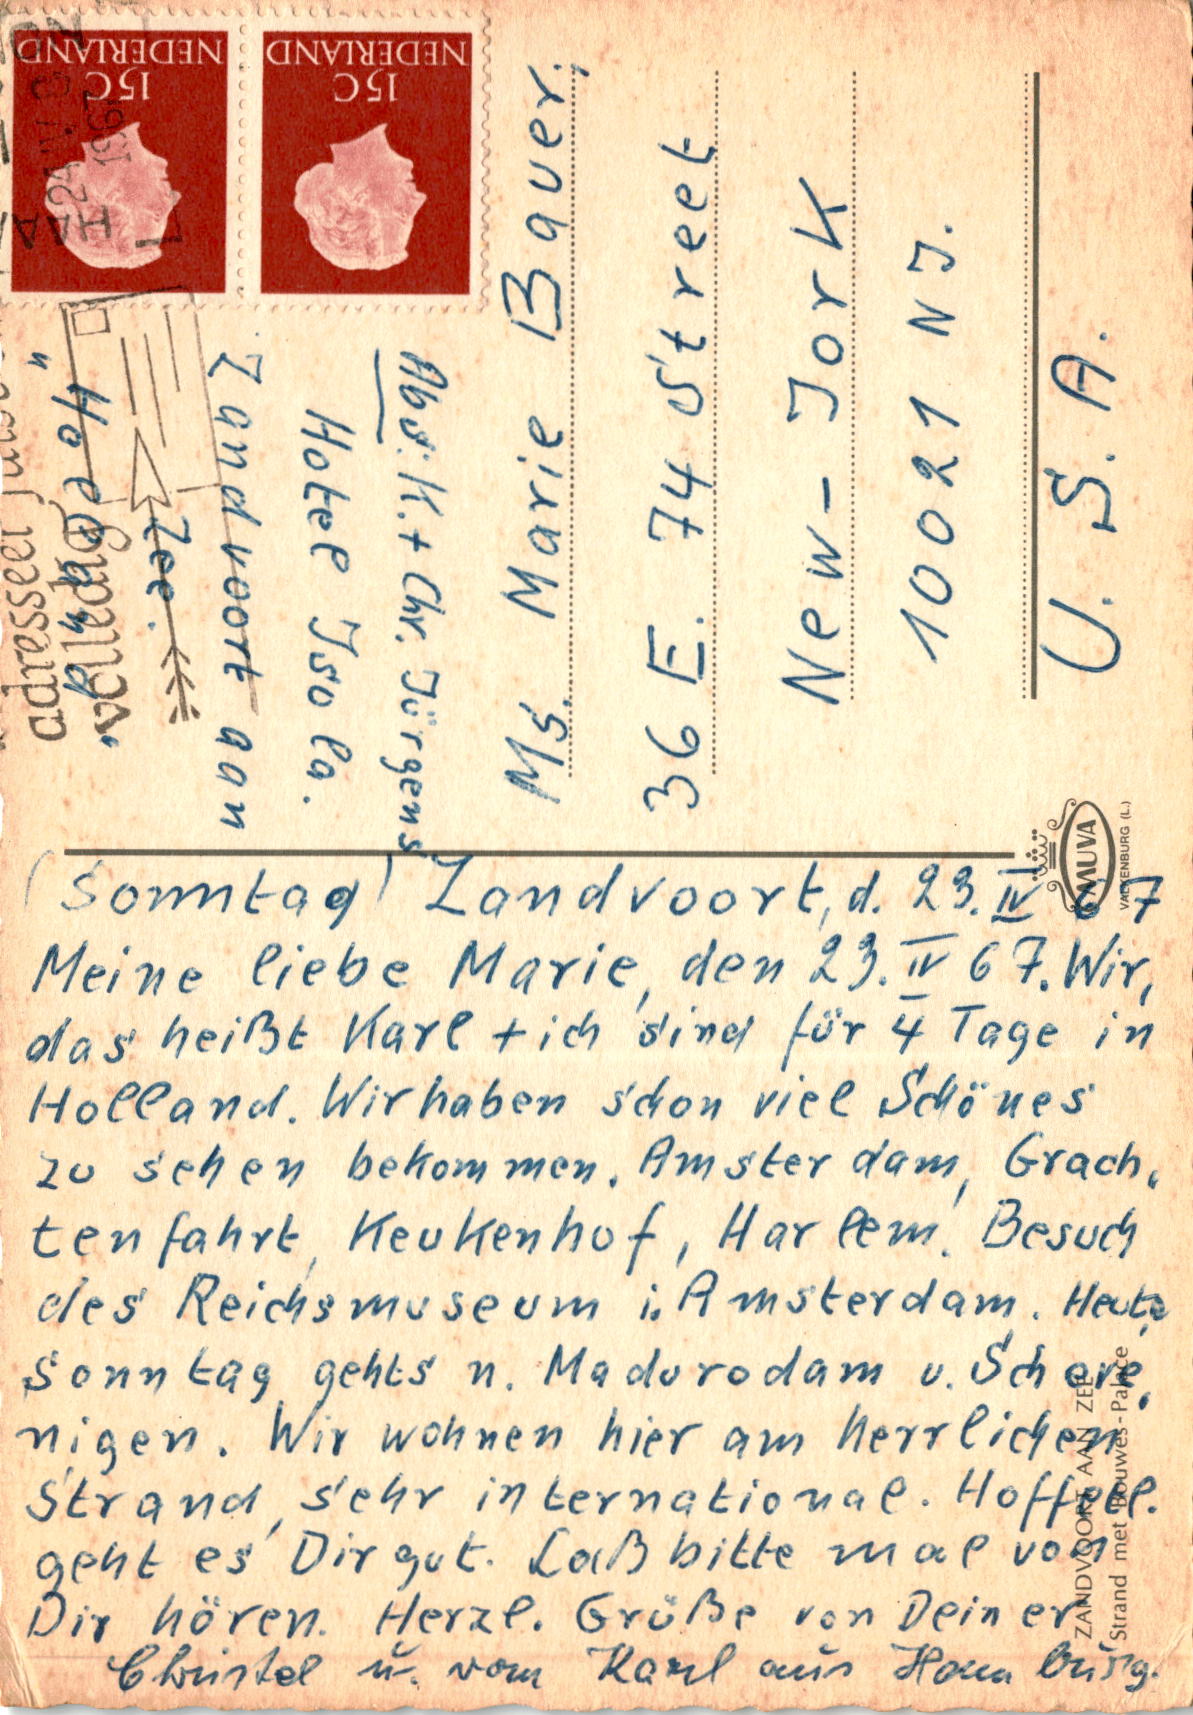 (Sonntag) Zandvoort, d. 23. IV 67
Meine liebe Marie, den 23. IV 67. Wir,
das heißt Karl + ich sind für 4 Tage in
Holland. Wir haben schon viel Schönes
zu sehen bekommen. Amsterdam, Grach-
tenfahrt, Keukenhof, Harlem. Besuch
des Reichsmuseum i. Amsterdam. Heute
Sonntag gehts n. Madurodam u. Scheve-
nigen. Wir wohnen hier am herrlichen
Strand, sehr international. Hoffetl.
geht es Dir gut. Laß bitte mal von
Dir hören. Herzl. Grüße von Deiner
Christel u. vom Karl aus Hamburg.
Ms. Marie Bauer.
36 E. 74 Street
New-York
10021 NJ.
U.S.A.
Abs. K. + Chr. Jürgens
Hotel Isola.
Zandvoort aan
Zee.
"Hogland"
NEDERLAND
15C
NEDERLAND
15C
1967
adresseer juist
volledig
MUVA
VALKENBURG (L.)
ZANDVOORT AAN ZEE
Strand met Bouwes-Palace